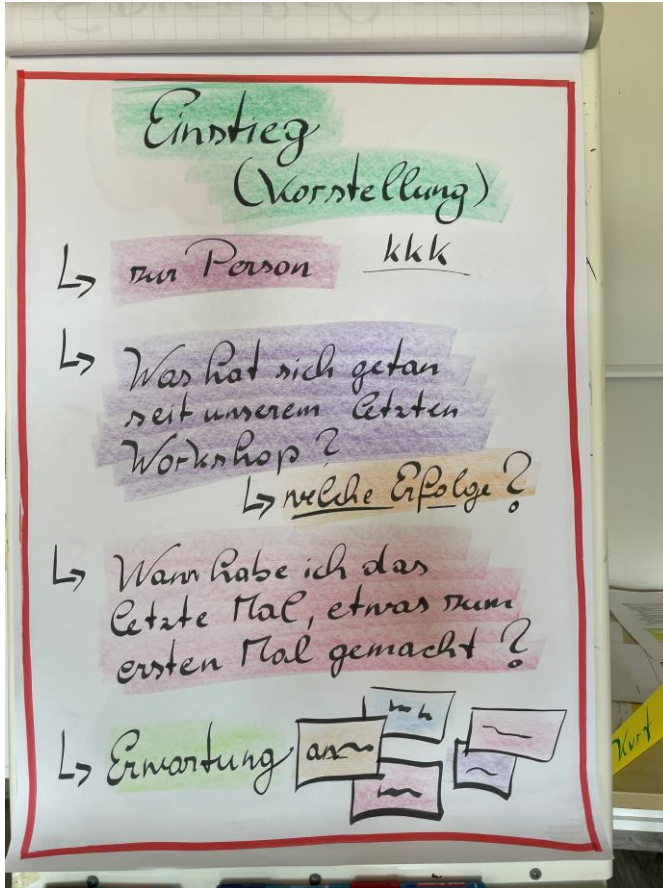 Einstieg
(Vorstellung)
↳ zur Person kkk
↳ Was hat sich getan
seit unserem letzten
Workshop?
↳ welche Erfolge?
↳ Wann habe ich das
letzte Mal, etwas zum
ersten Mal gemacht?
↳ Erwartung an
Kurt